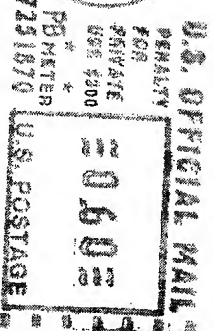 U.S. OFFICIAL MAIL
PENALTY
FOR
PRIVATE
USE $300
PB METER
7251670
060
U.S. POSTAGE